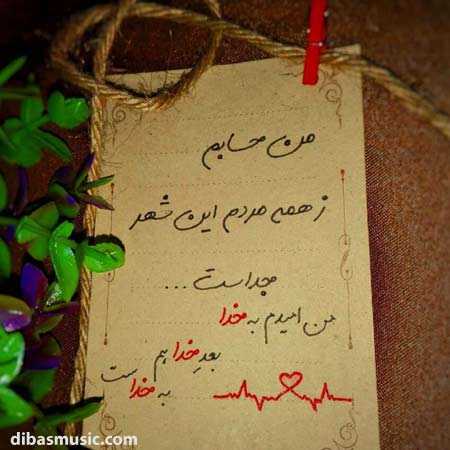 من حسابم
ز همه مردم این شهر
جداست...
من امیدم به خدا
بعدِ خدا هم
به خداست
dibasmusic.com